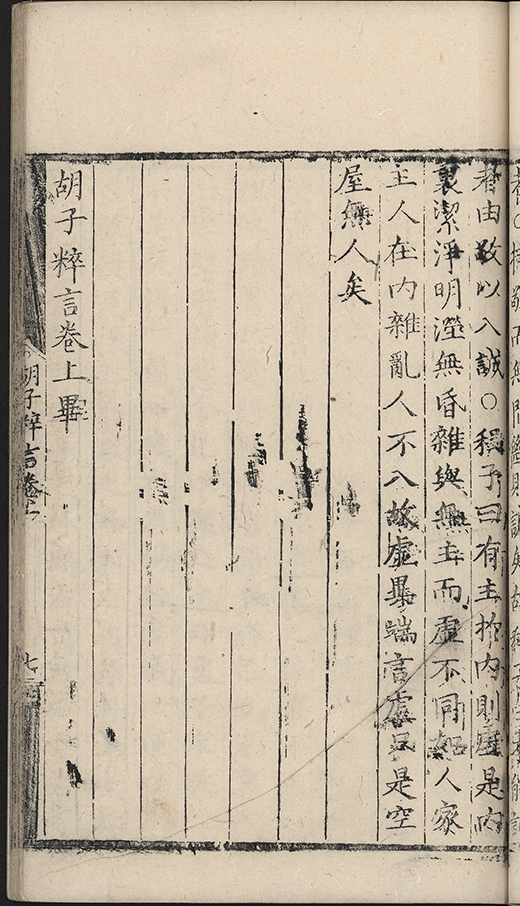 者由敬以入誠○程子曰有主於内則虛是内
裏潔淨明瀅無昏雜與無主而虛不同如人家
主人在内雜亂人不入故虛異端言虛只是空
屋無人矣
胡子粹言卷上畢
胡子粹言卷上
七